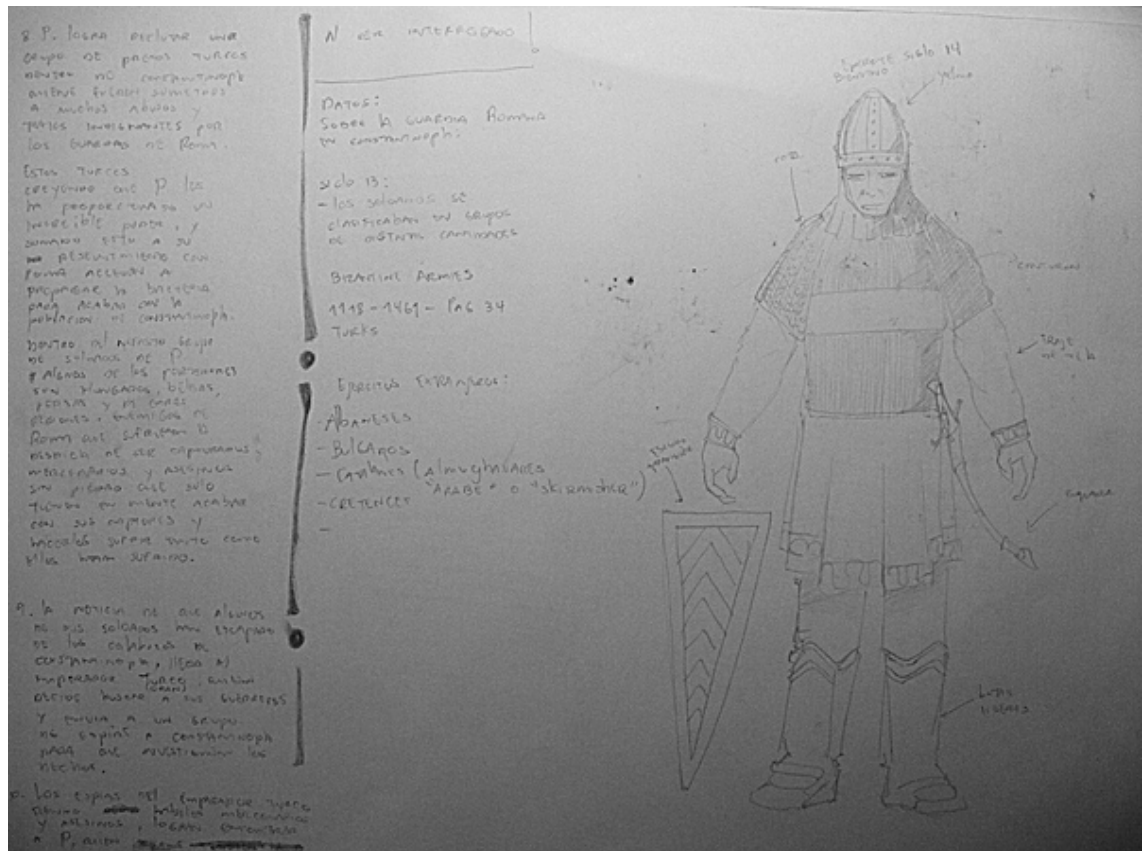 8 P. LOGRA RECLUTAR UNA
GRUPO DE PRESOS TURCOS
DENTRO DE CONSTANTINOPLA
QUIENES FUERON SOMETIDOS
A MUCHOS ABUSOS Y
TRATOS INDIGNANTES POR
LOS GUARDIAS DE ROMA.
ESTOS TURCOS
CREYENDO QUE P LES
HA PROPORCIONADO UN
INCREIBLE PODER, Y
SUMADO ESTO A SU
RESENTIMIENTO CON
ROMA ACCEDEN A
PROPAGAR LA BACTERIA
PARA ACABAR CON LA
POBLACION DE CONSTANTINOPLA.
DENTRO DEL NEFASTO GRUPO
DE SOLDADOS DE P
ALGUNOS DE LOS
SON HUNGAROS,
PERSAS Y DE OTRAS
ENEMIGOS DE
ROMA QUE SUFRIERON LA
DESDICHA DE SER CAPTURADOS,
MERCENARIOS Y ASESINOS
SIN PIEDAD QUE SOLO
TIENEN EN MENTE ACABAR
CON SUS CAPTORES Y
HACERLOS SUFRIR TANTO COMO
ELLOS HAN SUFRIDO.
9. LA NOTICIA DE QUE ALGUNOS
DE SUS SOLDADOS HAN ESCAPADO
DE LOS CALABOZOS DE
CONSTANTINOPLA, LLEGA AL
EMPERADOR TURCO
(GRAN)
BUSCAR A SUS GUERREROS
Y ENVIA A UN GRUPO
DE ESPIAS A CONSTANTINOPLA
PARA QUE INVESTIGUEN LOS
HECHOS.
LOS ESPIAS DEL EMPERADOR TURCO
HABILES MERCENARIOS
Y ASESINOS, LOGRAN
A P,
AL SER INTERROGADO
DATOS:
SOBRE LA GUARDIA ROMANA
EN CONSTANTINOPLA:
SIGLO 13:
- LOS SOLDADOS SE
CLASIFICABAN EN GRUPOS
DE DISTINTAS CANTIDADES
BIZANTINE ARMIES
1118-1461 - PAG 34
TURKS
EJERCITOS EXTRANJEROS:
- ALBANESES
- BULGAROS
- CATALANES (ALMUGHAVARES
"ARABE" O "SKIRMISHER")
- CRETENCES
-
SIGLO 14
BIZANTINO
YELMO
COTA
TRAJE
DE TELA
ESCUDO
ESPADA
BOTAS